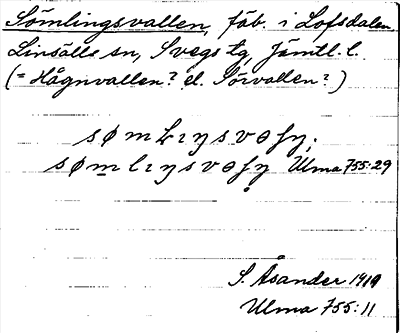 Sömlingsvallen, fäb. i Lofsdalen
Linsälls sn, Svegs tg, Jämtl. l.
(= Hågnvallen? el. Sörvallen?)
sømlıŋsvɵʃŋ;
sømlıŋsvɵʃŋ Ulma 755:29
S. Åsander 1919
Ulma 755:11